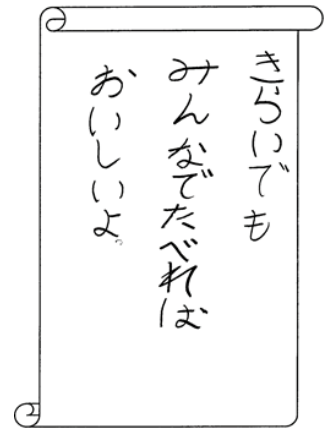 きらいでも
みんなでたべれば
おいしいよ。